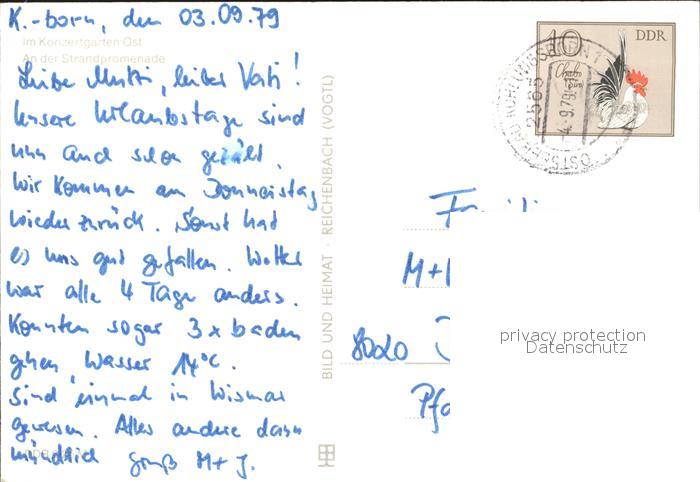 K.-born, den 03.09.79
Im Konzertgarten Ost
An der Strandpromenade
Liebe Mutti, lieber Vati!
Unsere Urlaubstage sind
nun auch schon gezählt.
Wir kommen am Donnerstag
wieder zurück. Sonst hat
es uns gut gefallen. Wetter
war alle 4 Tage anders.
Konnten sogar 3 x baden
gehen, Wasser 14°C.
Sind einmal in Wismar
gewesen. Alles andere dann
mündlich Gruß M+J.
BILD UND HEIMAT · REICHENBACH (VOGTL)
10
DDR
Chabo
2565
-4.-9.79
OSTSEEBAD KÜHLUNGSBORN 1
M+
8020
privacy protection
Datenschutz